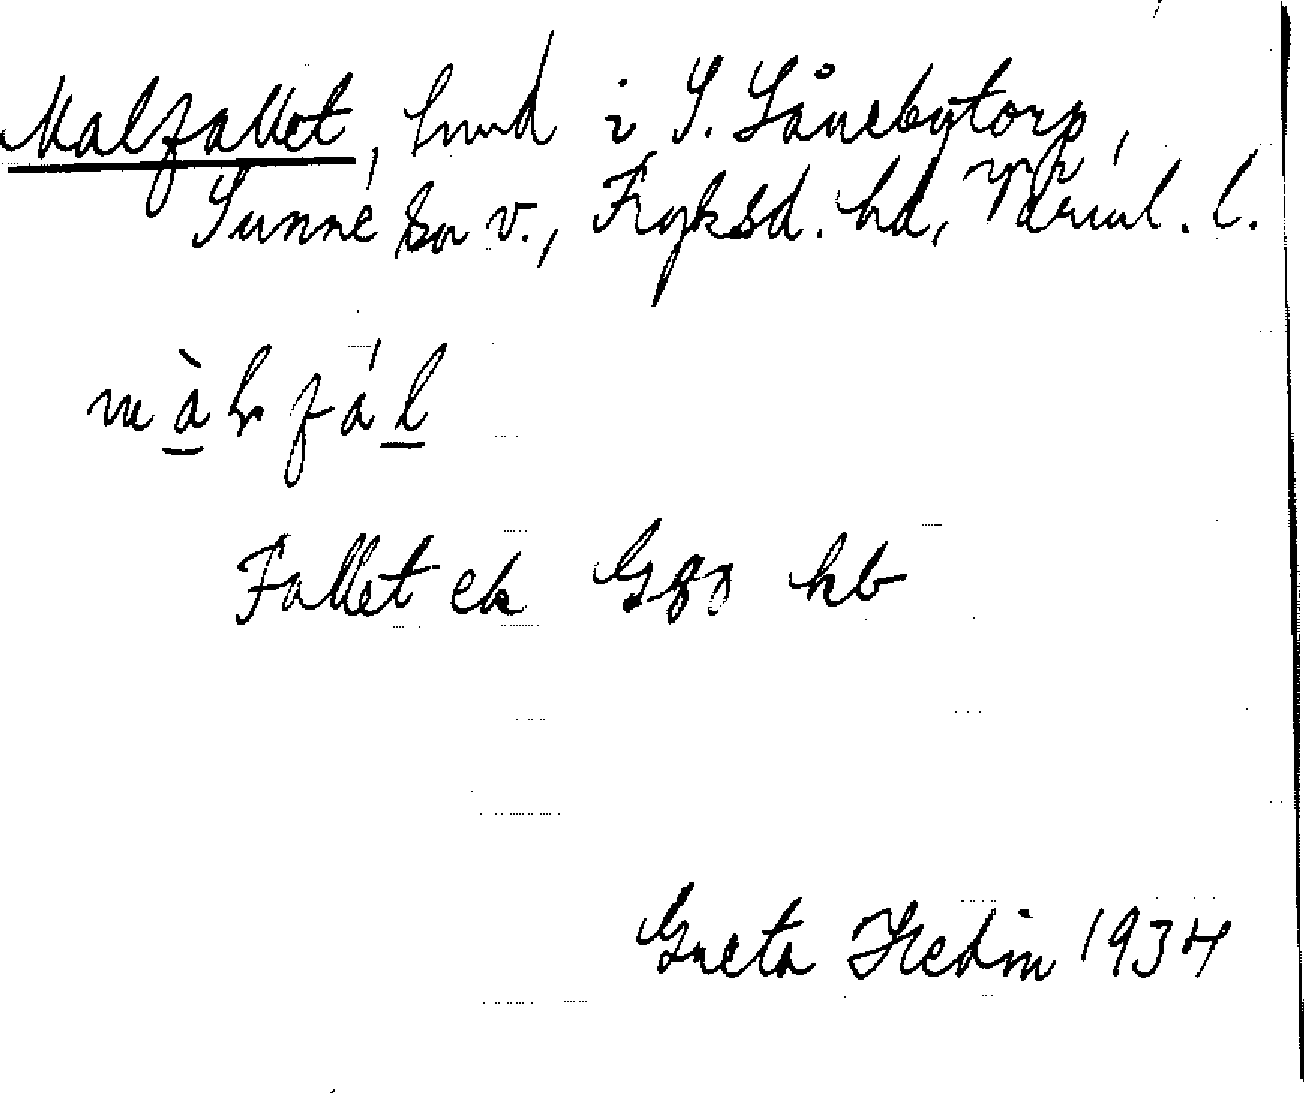 Malfallet, lund i S. Lånebytorp,
Sunne sn v., Fryksd. hd, Värml. l.
Fallet ek G kb
Greta Hedin 1934